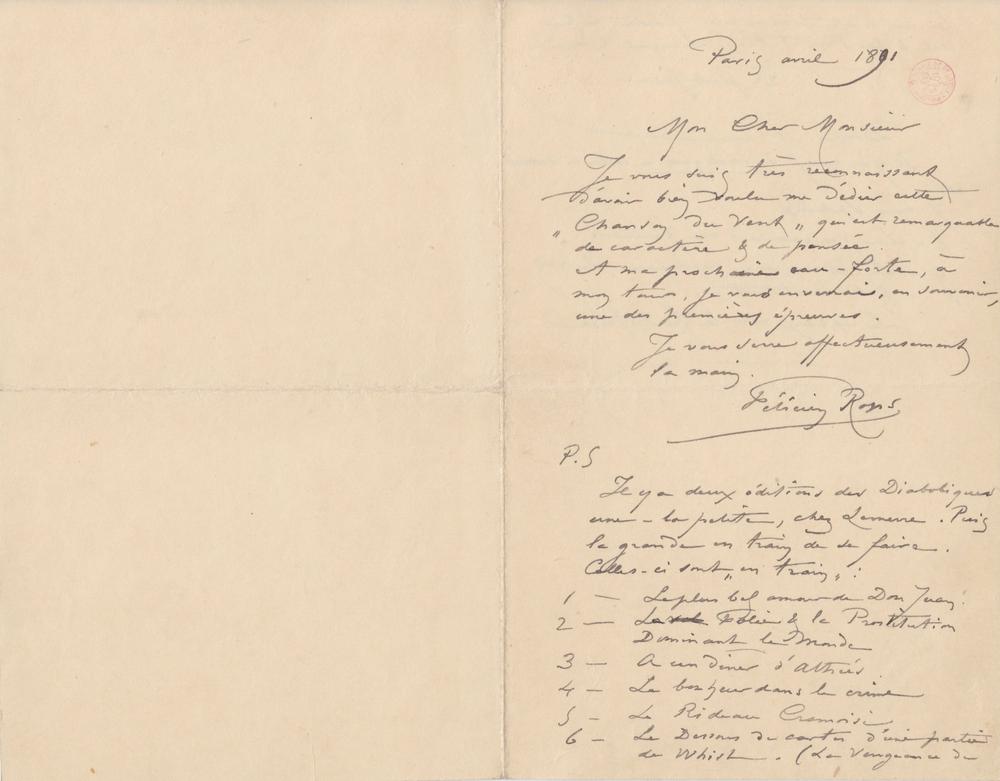 Paris avril 1891
Mon Cher Monsieur
Je vous suis très reconnaissant
d'avoir bien voulu me dédier cette
„ Chanson du Vent „ qui est remarquable
de caractère & de pensée.
A ma prochaine eau-forte, à
mon tour, je vous enverrai, en souvenir,
une des premières épreuves.
Je vous serre affectueusement
la main.
Félicien Rops
P.S
Il y a deux éditions des Diaboliques
une - la petite, chez Lemerre. Puis
la grande en train de se faire.
Celles-ci sont „en train„ :
1 — Le plus bel amour de Don Juan.
2 — La Folie & la Prostitution
Dominant le Monde
3 — A un dîner d'Athées
4 — Le bonheur dans le crime
5 - Le Rideau Cramoisi
6 — Le Dessous de cartes d'une partie
de Whist. (La Vengeance de